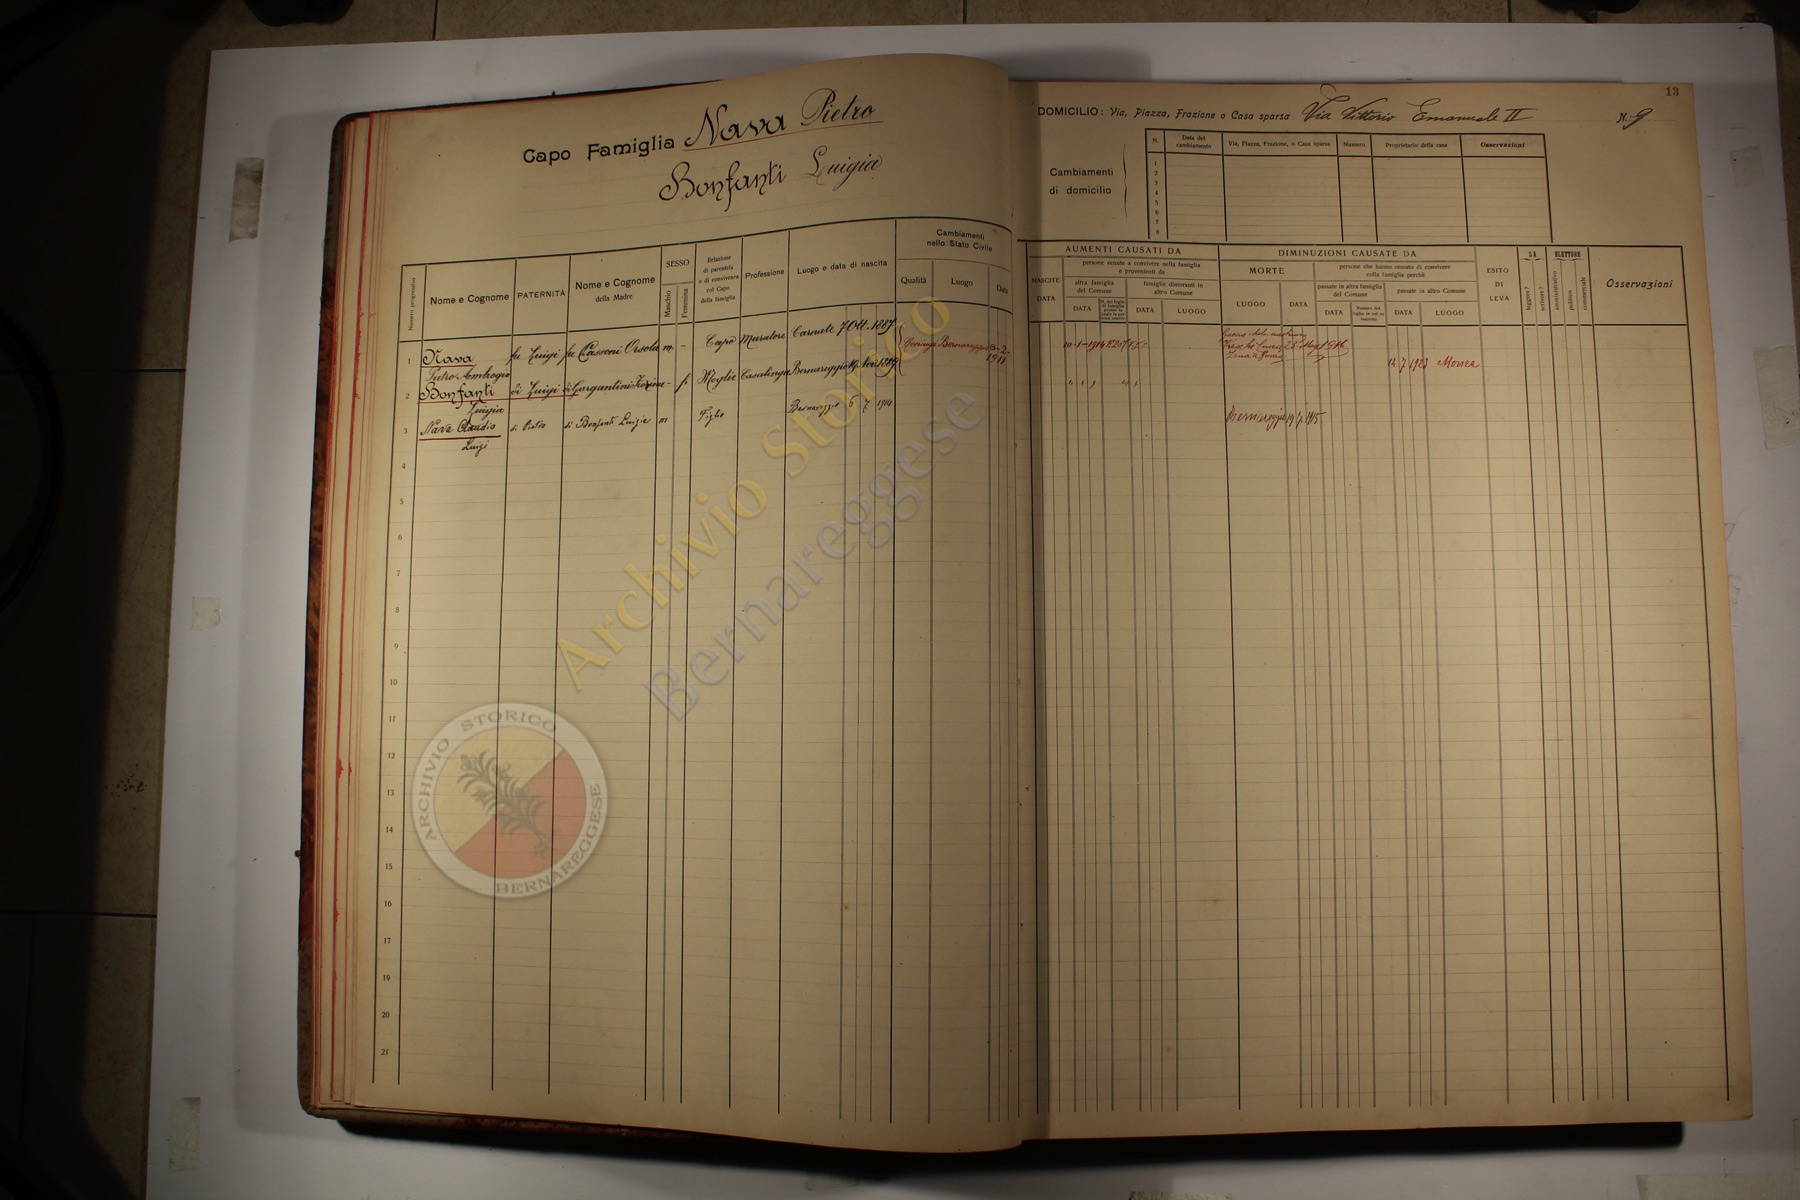 Capo Famiglia Nava Pietro
Bonfanti Luigia
13
DOMICILIO: Via, Piazza, Frazione o Casa sparsa Via Vittorio Emanuele II N. 9
Cambiamenti
di domicilio
N. Data del cambiamento Via, Piazza, Frazione, o Casa sparsa Numero Proprietario della casa Osservazioni
1
2
3
4
5
6
7
8
Numero progressivo
Nome e Cognome
PATERNITÀ
Nome e Cognome
della Madre
SESSO
Maschio
Femmina
Relazione
di parentela
o di convivenza
col Capo
della famiglia
Professione
Luogo e data di nascita
Cambiamenti
nello Stato Civile
Qualità Luogo Data
NASCITE
DATA
AUMENTI CAUSATI DA
persone venute a convivere nella famiglia
e provenienti da
altra famiglia
del Comune
famiglie dimoranti in
altro Comune
DATA
DATA LUOGO
DIMINUZIONI CAUSATE DA
MORTE
LUOGO DATA
persone che hanno cessato di convivere
colla famiglia perchè
passate in altra famiglia
del Comune
passate in altro Comune
DATA
DATA LUOGO
ESITO
DI
LEVA
SA
leggere?
scrivere?
ELETTORE
amministrativo
politico
commerciale
Osservazioni
1 Nava fu Luigi fu Casconi Orsola m - Capo Muratore Carnate 7 Ott. 1887 Coniug Bernareggio 1911
Pietro Ambrogio
10-1-1914
2 Bonfanti di Luigi di Gargantini - f. Moglie Casalinga Bernareggio Nov. 1889
Luigia
14 7 1923 Monza
3 Nava Claudio di Pietro di Bonfanti Luigia m Figlio Bernareggio 5 7 1914 Bernareggio 19 7 1915
Luigi
4
5
6
7
8
9
10
11
12
13
14
15
16
17
18
19
20
21
Archivio Storico
Bernareggese
ARCHIVIO STORICO
BERNAREGGESE